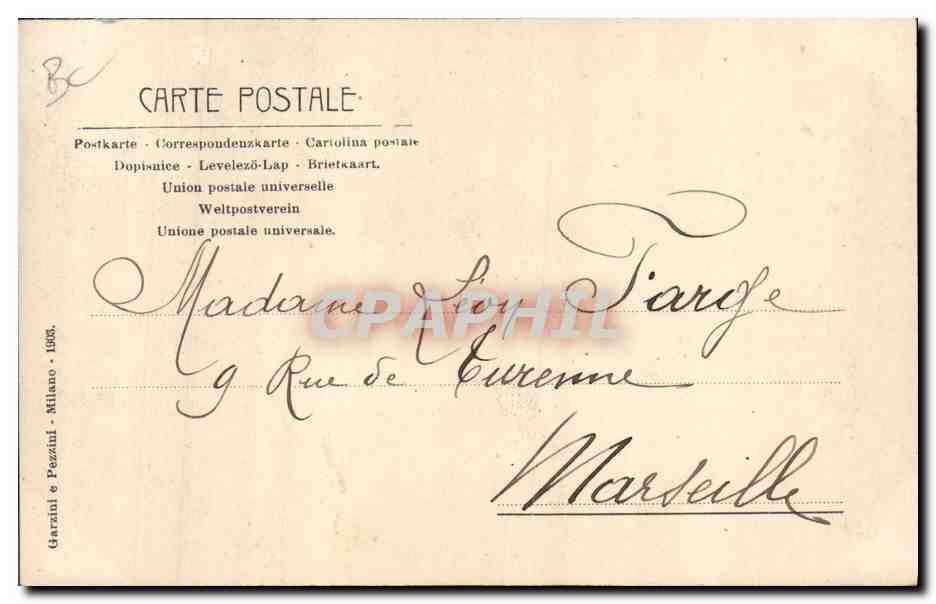 BC
CARTE POSTALE
Postkarte - Correspondenzkarte - Cartolina postale
Dopisnice - Levelező-Lap - Briefkaart.
Union postale universelle
Weltpostverein
Unione postale universale.
Madame Léon Farge
9 Rue de Turenne
Marseille
Garzini e Pezzini - Milano - 1903.
CPAPHIL